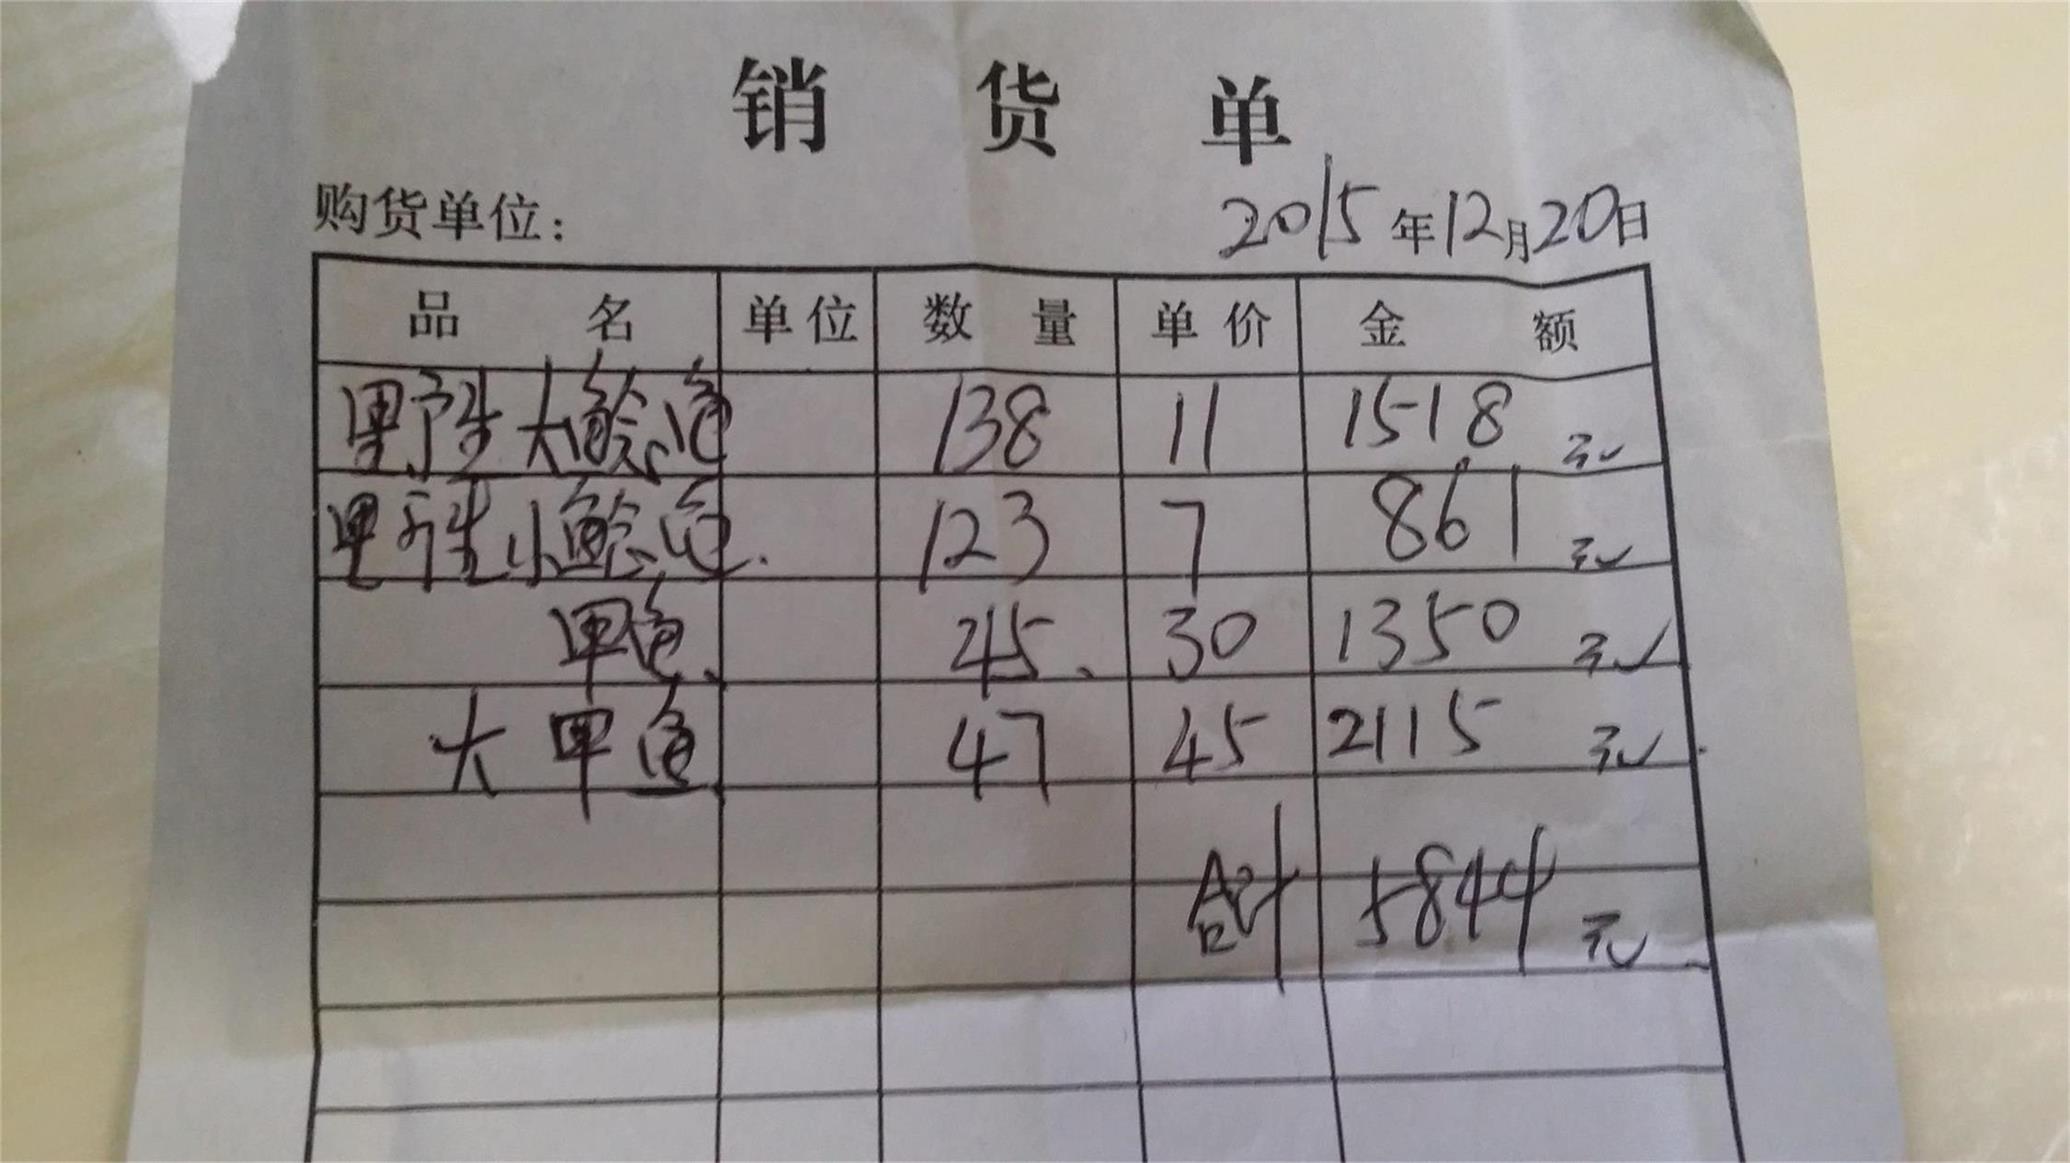 销货单
购货单位: 2015年12月20日
品名 单位 数量 单价 金额
野生大鲶鱼 138 11 1518元
野生小鲶鱼. 123 7 861元
甲鱼、 45、 30 1350元
大甲鱼 47 45 2115元
合计 5844元